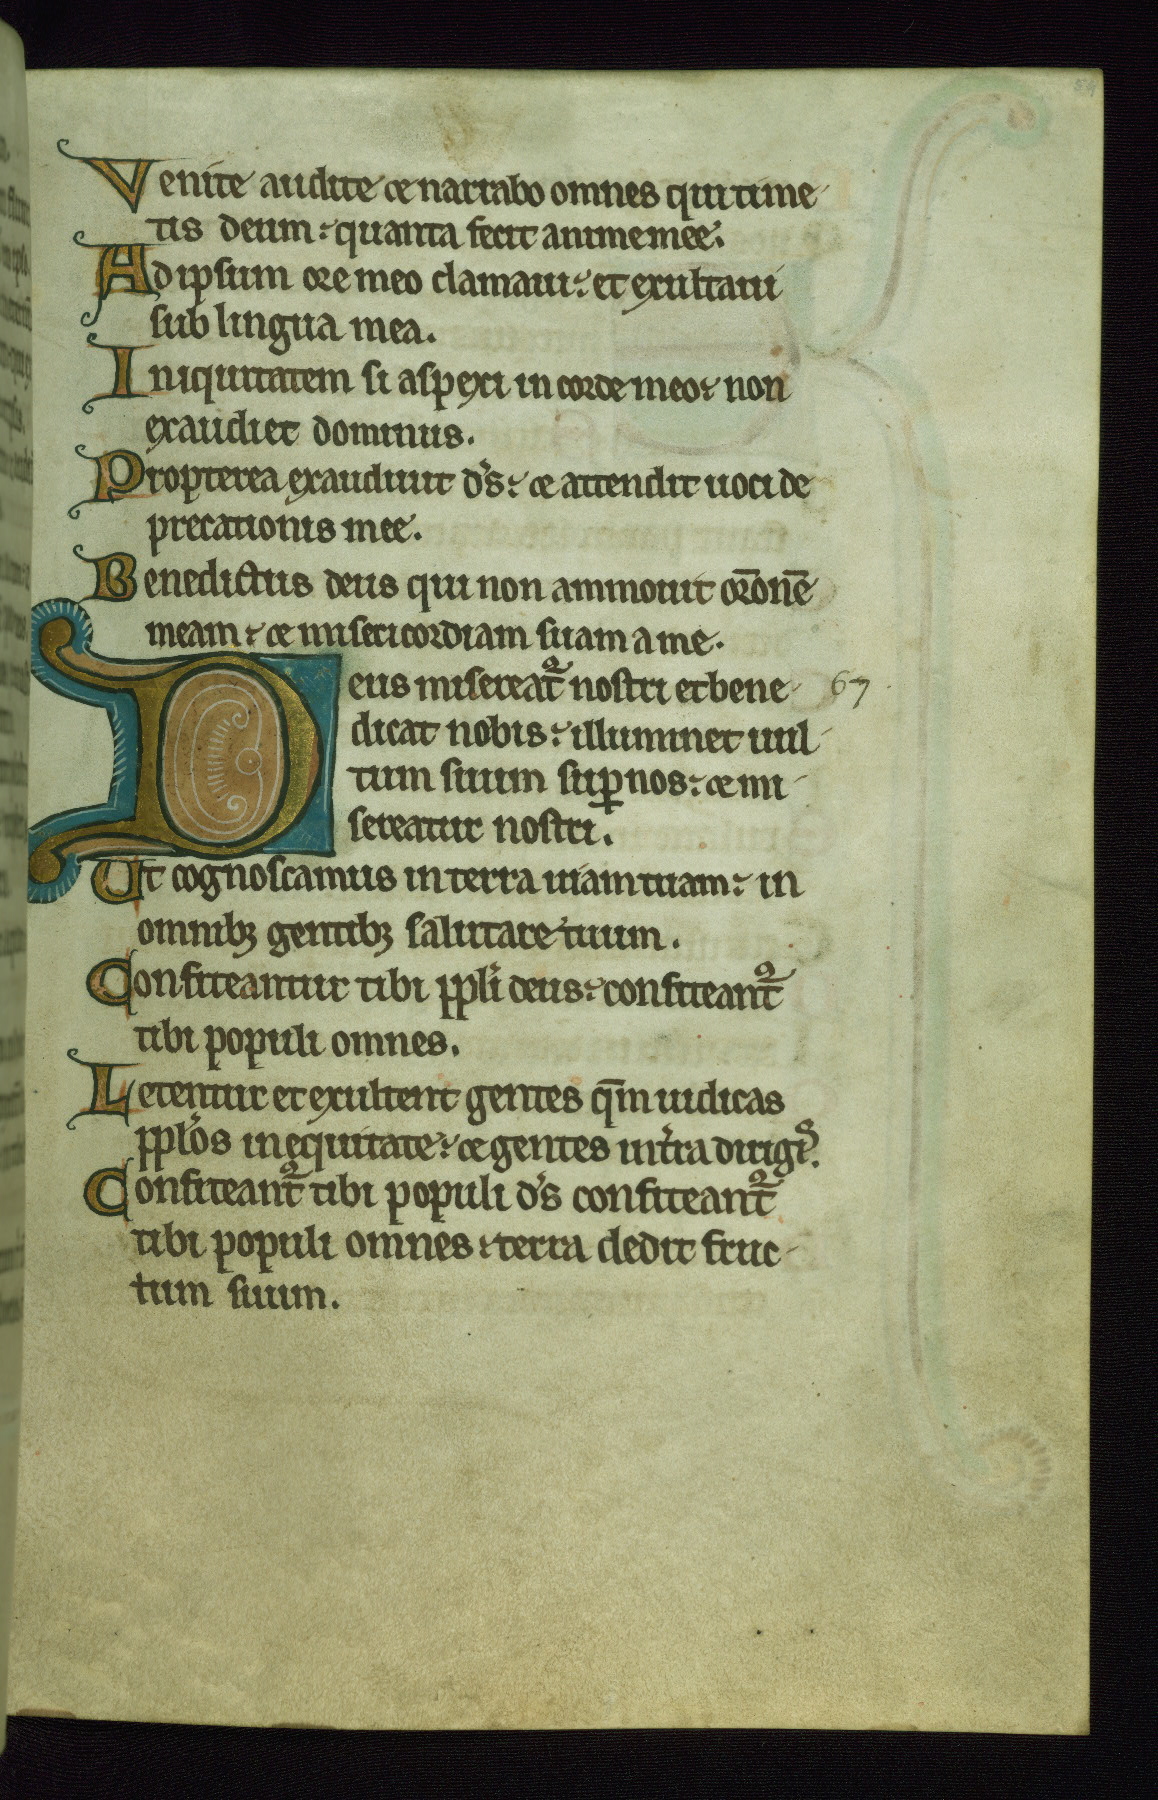 Venite audite ⁊ narrabo omnes qui time
tis deum: quanta fecit anime mee.
Ad ipsum ore meo clamaui: et exultaui
sub lingua mea.
Iniquitatem si aspexi in corde meo: non
exaudiet dominus.
Propterea exaudiuit d's: ⁊ attendit uoci de
precationis mee.
Benedictus deus qui non ammouit or̄onē
meam: ⁊ misericordiam suam a me.
Deus misereat᷑ nostri et bene 67
dicat nobis: illuminet uul
tum suum suꝑ nos: ⁊ mi
sereatur nostri.
Ut cognoscamus in terra uiam tuam: in
omnibꝫ gentibꝫ salutare tuum.
Confiteantur tibi ppl'i deus: confiteant᷑
tibi populi omnes.
Letentur et exultent gentes qm̄ iudicas
ppl'os in equitate: ⁊ gentes in t'ra dirigis.
Confiteant᷑ tibi populi d's confiteant᷑
tibi populi omnes: terra dedit fruc
tum suum.